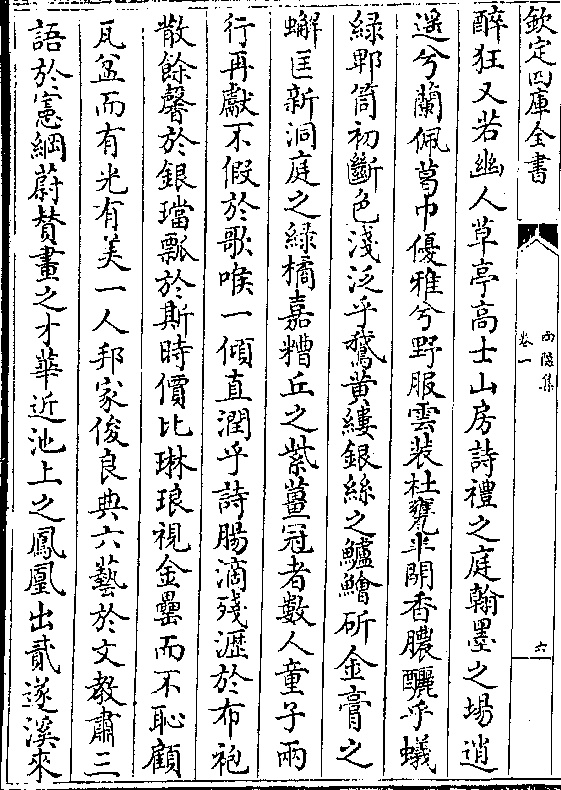 欽定四庫全書
西隱集
卷一
六
醉狂又若幽人草亭高士山房詩禮之庭翰墨之場逍
遥兮蘭佩葛巾優雅兮野服雲裝社甕半開香膿釃乎蟻
綠郫筒初斷色淺泛乎鵞黄縷銀絲之鱸鱠斫金膏之
蠏匡新洞庭之緑橘嘉糟丘之紫薑冠者數人童子兩
行再獻不假於歌喉一傾直潤乎詩腸滴殘瀝於布袍
散餘馨於銀璫瓢於斯時價比琳琅視金罍而不恥顧
瓦盆而有光有美一人邦家俊良典六藝於文教肅三
語於憲綱蔚賛畫之才華近池上之鳳凰出貳遂溪來